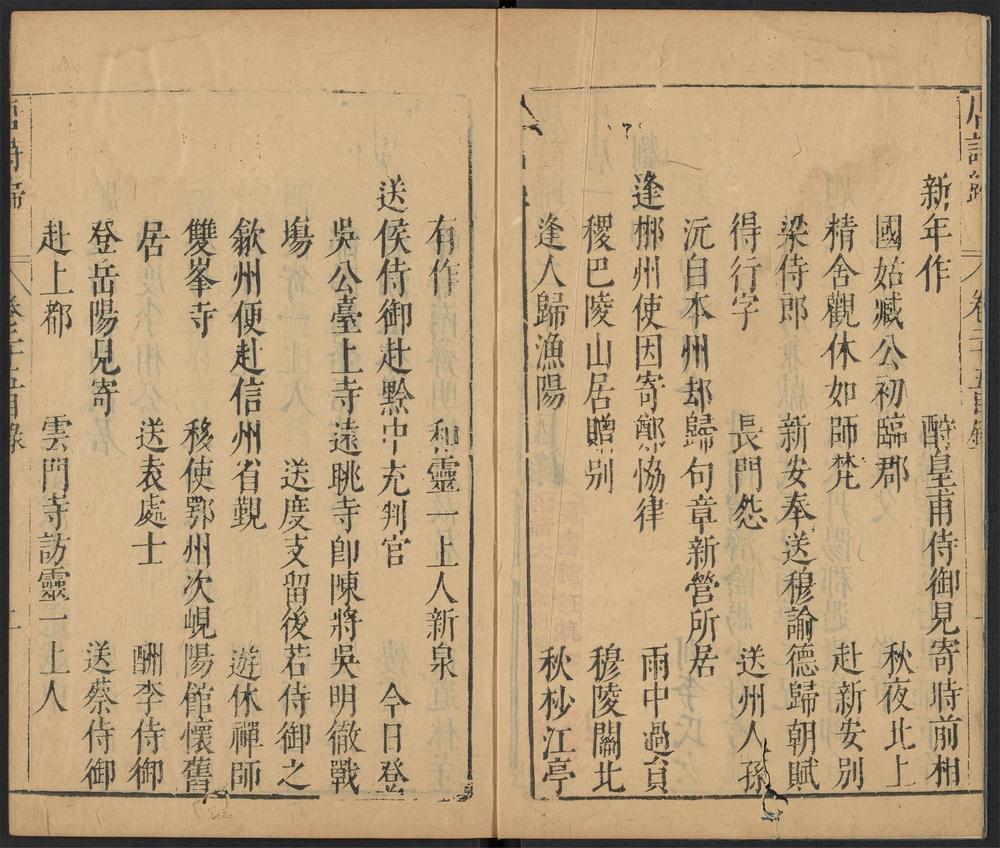 唐詩歸
卷二十五目錄
新年作 酧皇甫侍御見寄時前相
國姑臧公初臨郡 秋夜北上
精舍觀休如師梵 赴新安別
梁侍郎 新安奉送穆諭德歸朝賦
得行字 長門怨 送州人孫
沅自本州却歸句章新營所居
逢郴州使因寄鄭協律 雨中過員
稷巴陵山居贈别 穆陵關北
逢人歸漁陽 秋杪江亭
有作 和靈一上人新泉
送侯侍御赴黔中充判官 今日登
吳公臺上寺遠眺寺卽陳將吳明徹戰
塲 送度支留後若侍御之
歙州便赴信州省覲 遊休禪師
雙峯寺 移使鄂州次峴陽館懷舊
居 送袁處士 酬李侍御
登岳陽見寄 送蔡侍御
赴上都 雲門寺訪靈一上人
唐詩歸
卷二十五目錄